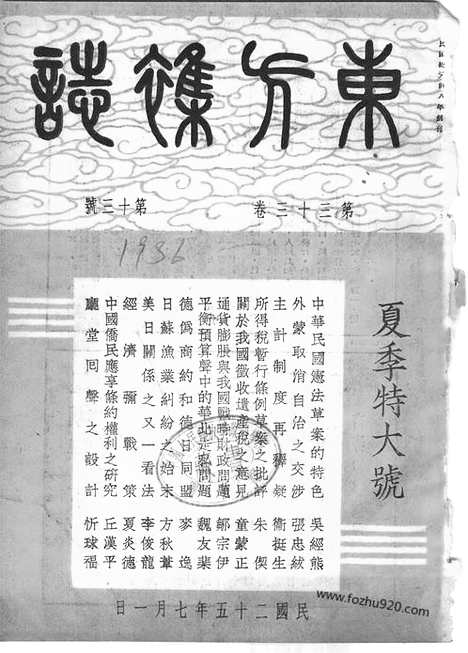 東方雜誌
第三十三卷
第十三號
1936
夏季特大號
中華民國憲法草案的特色 吳經熊
外蒙取消自治之交涉 張忠紱
主計制度再釋疑 衛挺生
所得稅暫行條例草案之批評 朱偰
關於我國徵收遺產稅之意見 童蒙正
通貨膨脹與我國戰時財政問題 鄒宗伊
平衡預算聲中的華北走私問題 魏友棐
德僞商約和德日同盟 麥逸
日蘇漁業糾紛之始末 方秋葦
美日關係之又一看法 李俊龍
經濟彌戰策 夏炎德
中國僑民應享條約權利之研究 丘漢平
廳堂囘聲之設計 忻球福
民國二十五年七月一日
www.fozhu920.com